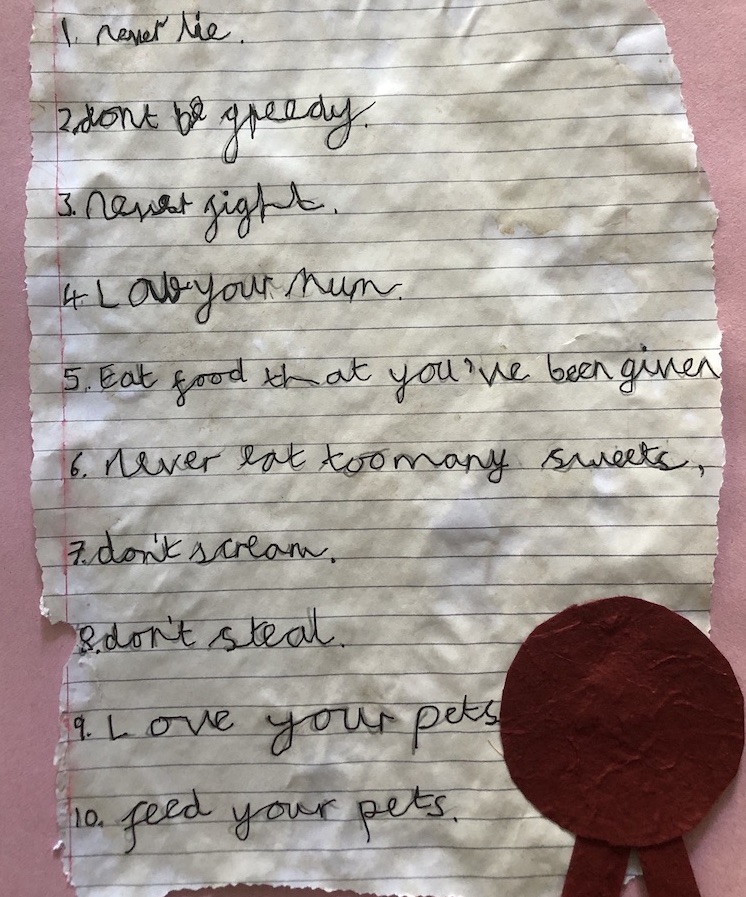 1. never lie.
2. dont be greedy.
3. never fight.
4. Love your Mum.
5. Eat food that you've been given
6. never eat too many sweets,
7. don't scream.
8. don't steal.
9. Love your pets
10. feed your pets.